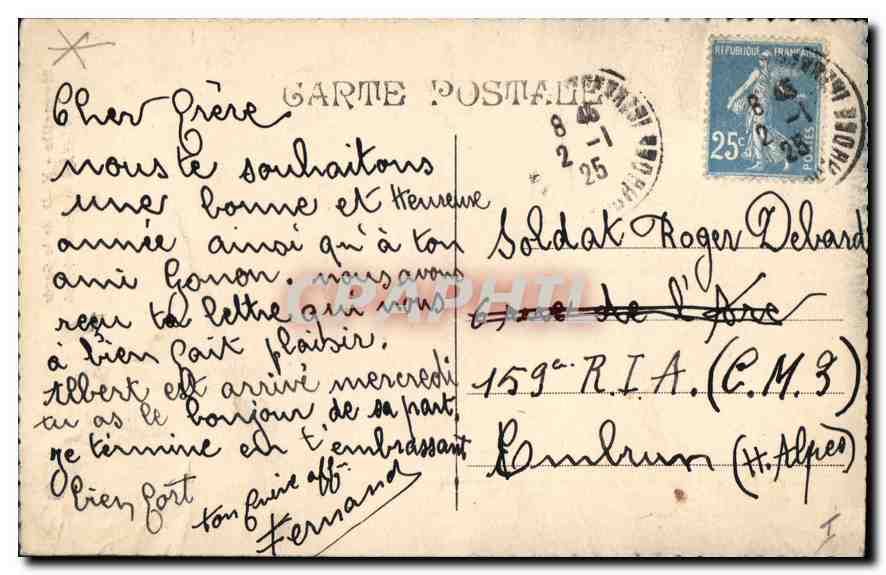 CARTE POSTALE
RÉPUBLIQUE FRANÇAISE
25c
POSTES
8 45
2 -1
25
8 45
2 -1
25
Cher frère
nous te souhaitons
une bonne et Heureuse
année ainsi qu'à ton
ami Gonon. nous avons
reçu ta lettre qui nous
à bien fait plaisir.
Albert est arrivé mercredi
tu as le bonjour de sa part.
je termine en t'embrassant
bien fort
ton frère aff.
Fernand
Soldat Roger Debard
6, rue de l'Arc
159e R.I.A. (C.M.3)
Embrun (H. Alpes)
CPAPHIL
I